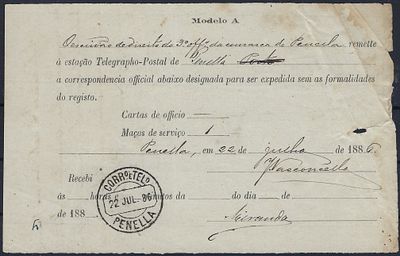 Modelo A
O escrivão de direito do 3º off. da comarca de Penella remette
á estação Telegrapho-Postal de Penella
a correspondencia official abaixo designada para ser expedida sem as formalidades
do registo.
Cartas de officio —
Maços de serviço 1
Penella, em 22 de julho de 1886.
JVasconcellos
Recebi
ás horas e minutos da do dia de
de 188
Miranda
CORRº E TELº
22 JUL. 86
PENELLA